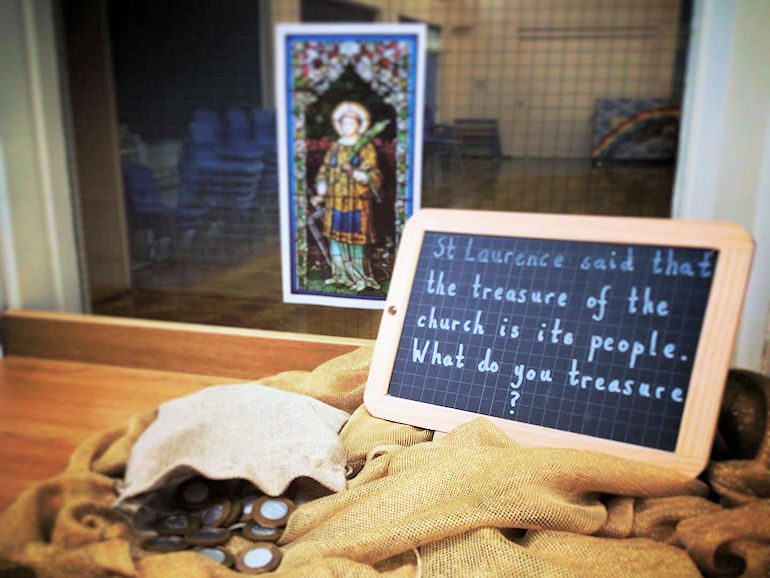 St Laurence said that
the treasure of the
church is its people.
What do you treasure
?